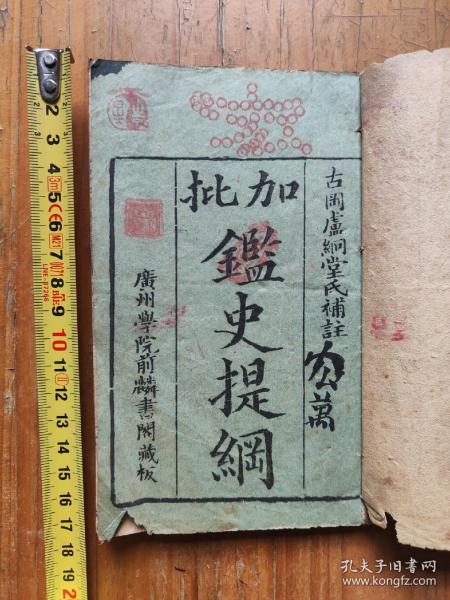 加批
鑑史提綱
古岡盧絅堂氏補註
公萬
廣州學院前麟書閣藏板
2 3 4 5 6 7 8 9 10 11 12 13 14 15 16 17 18 19 2
3m
M21
孔夫子旧书网
www.kongfz.com